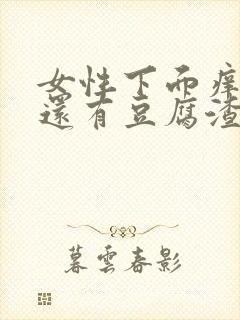 女性下面痒
還有豆腐渣
暮雲春影